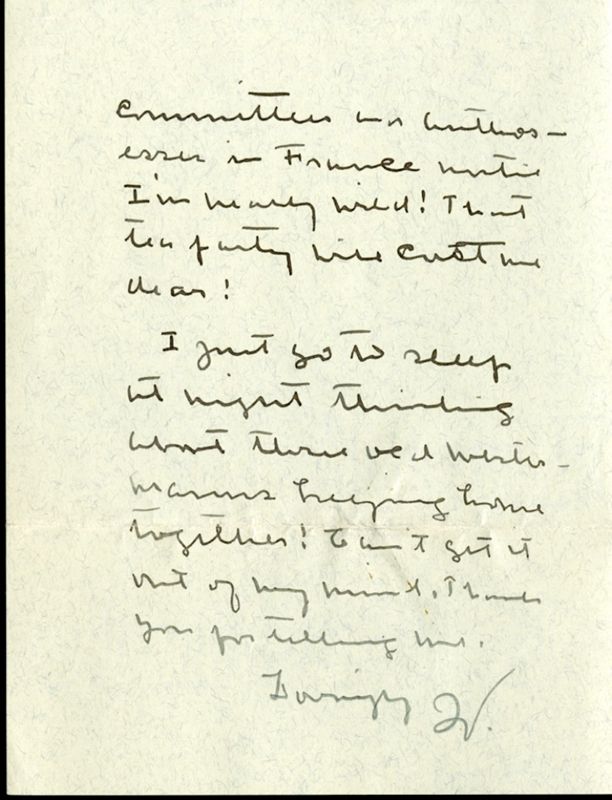 committees and author-
esses in France until
I'm nearly wild! That
tea party will cost me
dear!
I just go to sleep
at night thinking
about those old
keeping house
together! Can't get it
out of my mind. Thank
you for telling me.
Lovingly W.